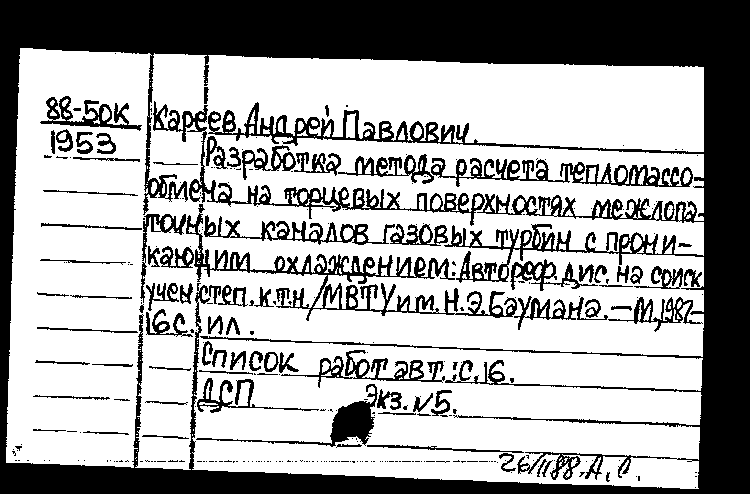 88-50К
1953
Кареев, Андрей Павлович.
Разработка метода расчета тепломассо-
обмена на торцевых поверхностях межлопа-
точных каналов газовых турбин с прони-
кающим охлаждением: Автореф. дис. на соиск.
учен. степ. к.т.н. / МВТУ им. Н.Э. Баумана. — М., 1987.—
16 с. : ил.
Список работ авт.: с. 16.
ДСП Экз. №5.
26/II 88. А. С.